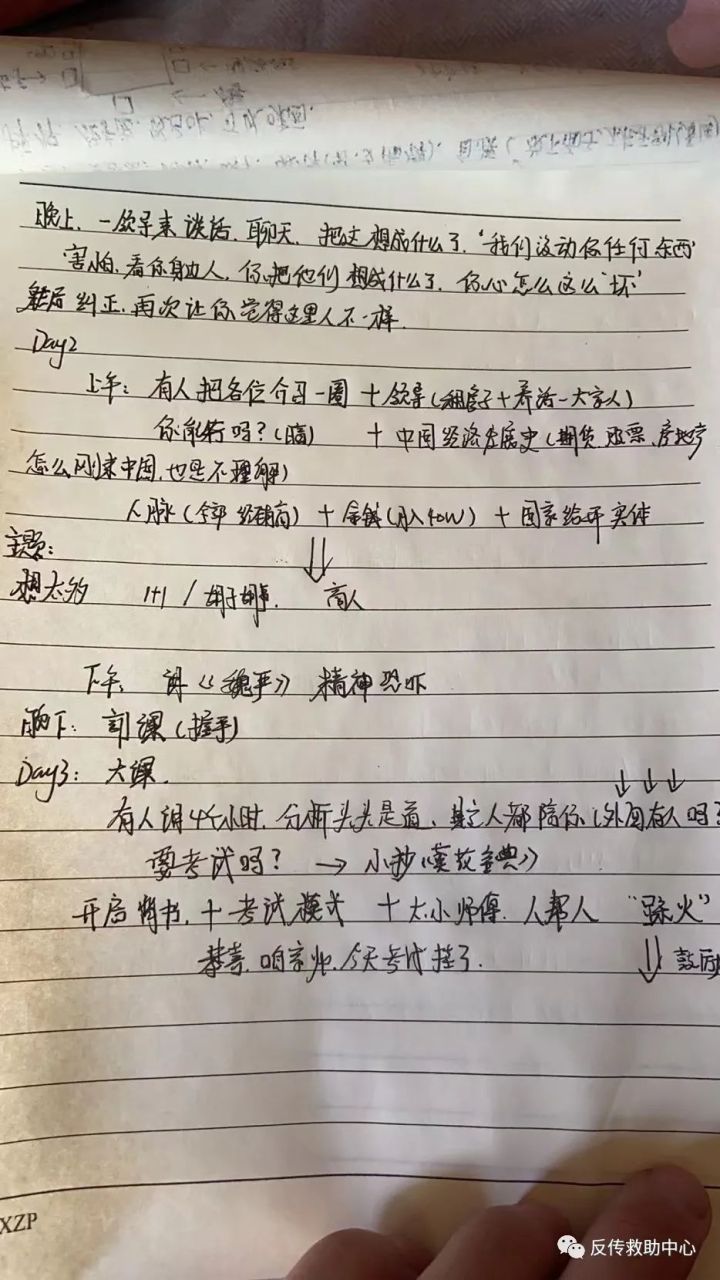 晚上、一领导来谈话、聊天、把这想成什么了、"我们没动你任何东西"
害怕、看你身边人、你把他们想成什么了、你心怎么这么"坏"
然后纠正、再次让你觉得这里人不一样.
Day2
上午: 有人把各位介绍一圈 + 领导(租房子+养活一大家人)
你能行吗?(脑) + 中国经济发展史(期货、股票、房地产
怎么刚来中国、也是不理解)
人脉(全部 经销商) + 金钱(月入40W) + 国家给开实体
主题:
想太多 1+1 / 商人
下午: 讲《》精神恐吓
晚下: 讲课(握手)
Day3: 大课.
有人讲4个小时、分析头头是道、其它人都陪你(外面有人吗?
要考试吗? → 小抄《宝典》
开启背书、+考试模式 +大小师傅、人帮人
恭喜、咱家、今天考试挂了. 鼓励
XZP
反传救助中心